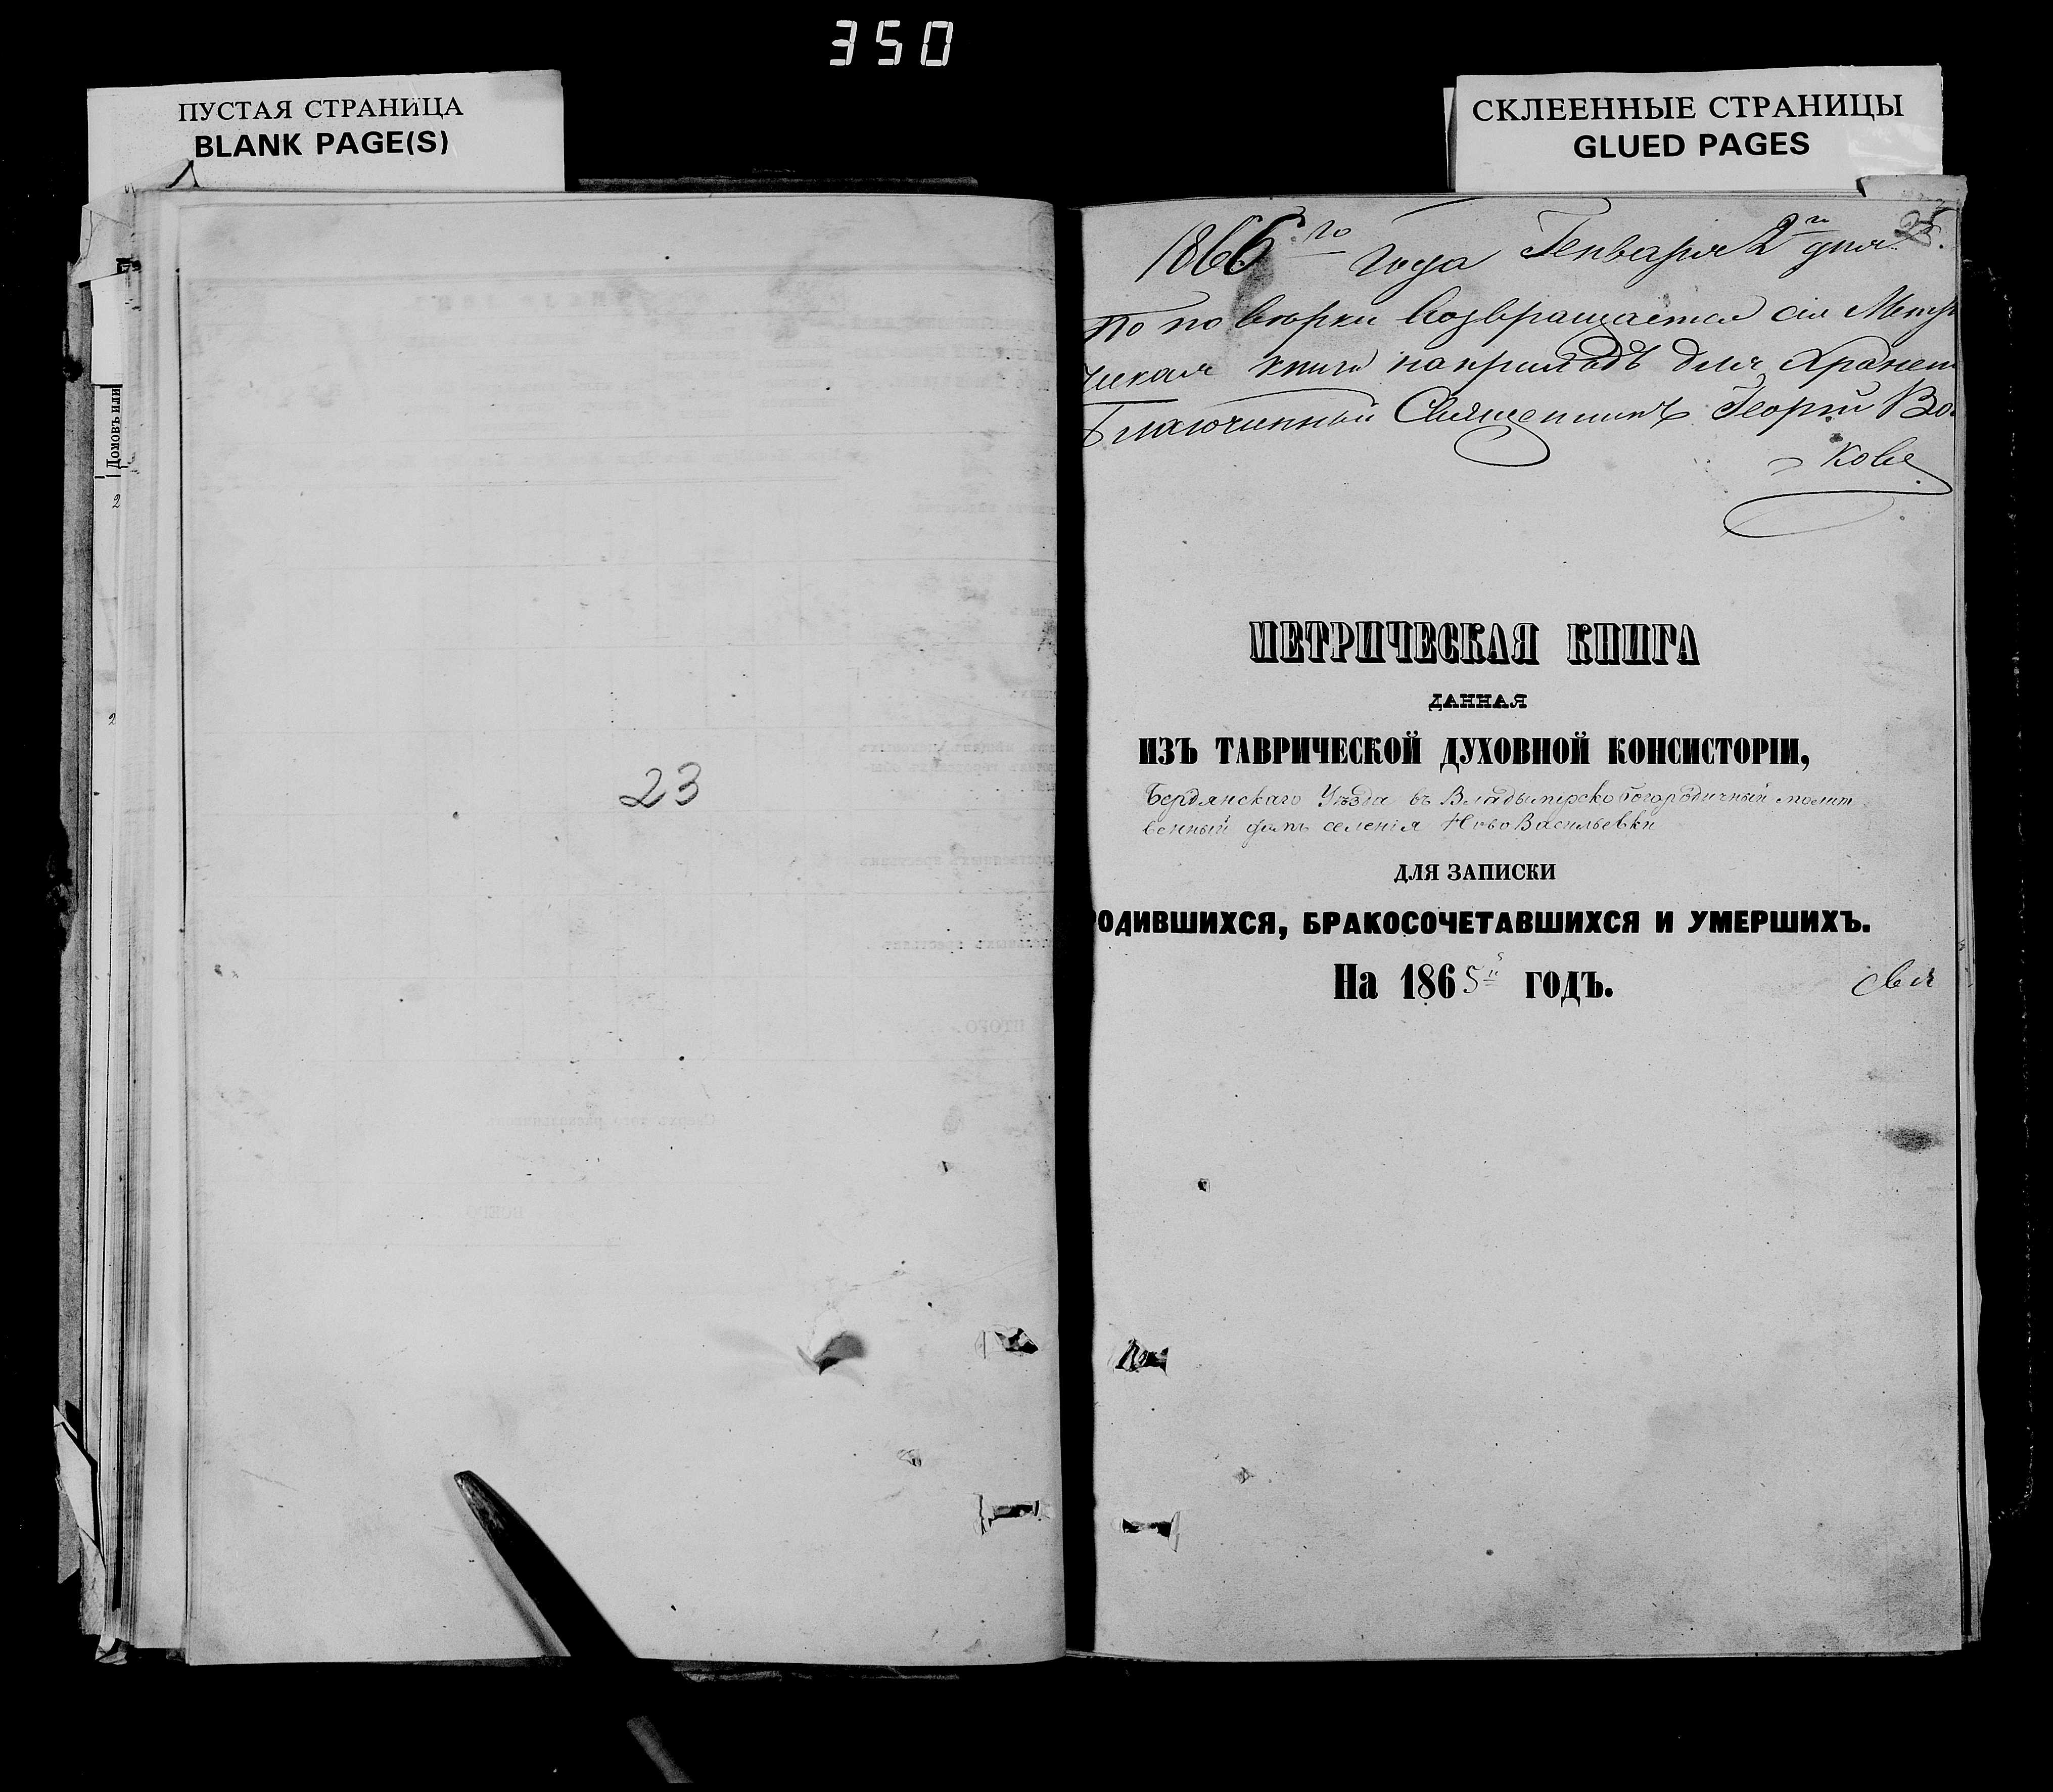 350
ПУСТАЯ СТРАНИЦА
BLANK PAGE(S)
СКЛЕЕННЫЕ СТРАНИЦЫ
GLUED PAGES
Домовъ или
2
2
23
25.
1866.го года Генваря 2го дня
По поверки возвращается сія Метри
ческая книга на приходъ для хранен
Благочинный Священникъ Георгій Во
ковъ
МЕТРИЧЕСКАЯ КНИГА
ДАННАЯ
ИЗЪ ТАВРИЧЕСКОЙ ДУХОВНОЙ КОНСИСТОРІИ,
Бердянскаго Уѣзда въ Владымірско Богородичный молит
венный домъ селенія НовоВасильевки
ДЛЯ ЗАПИСКИ
РОДИВШИХСЯ, БРАКОСОЧЕТАВШИХСЯ И УМЕРШИХЪ.
На 1865й годъ.
свя